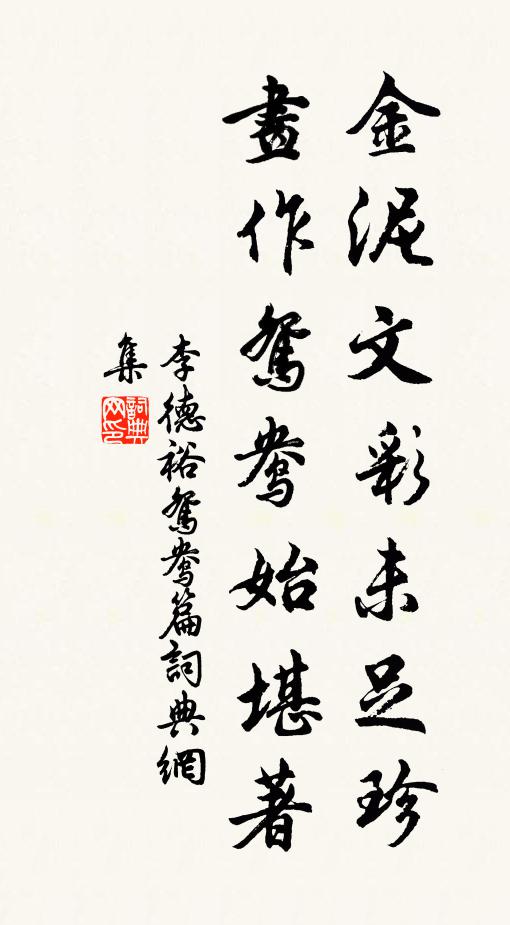 金泥文彩未足珍
畫作鴛鴦始堪著
李德裕鴛鴦篇詞典網
集
詞典
网印